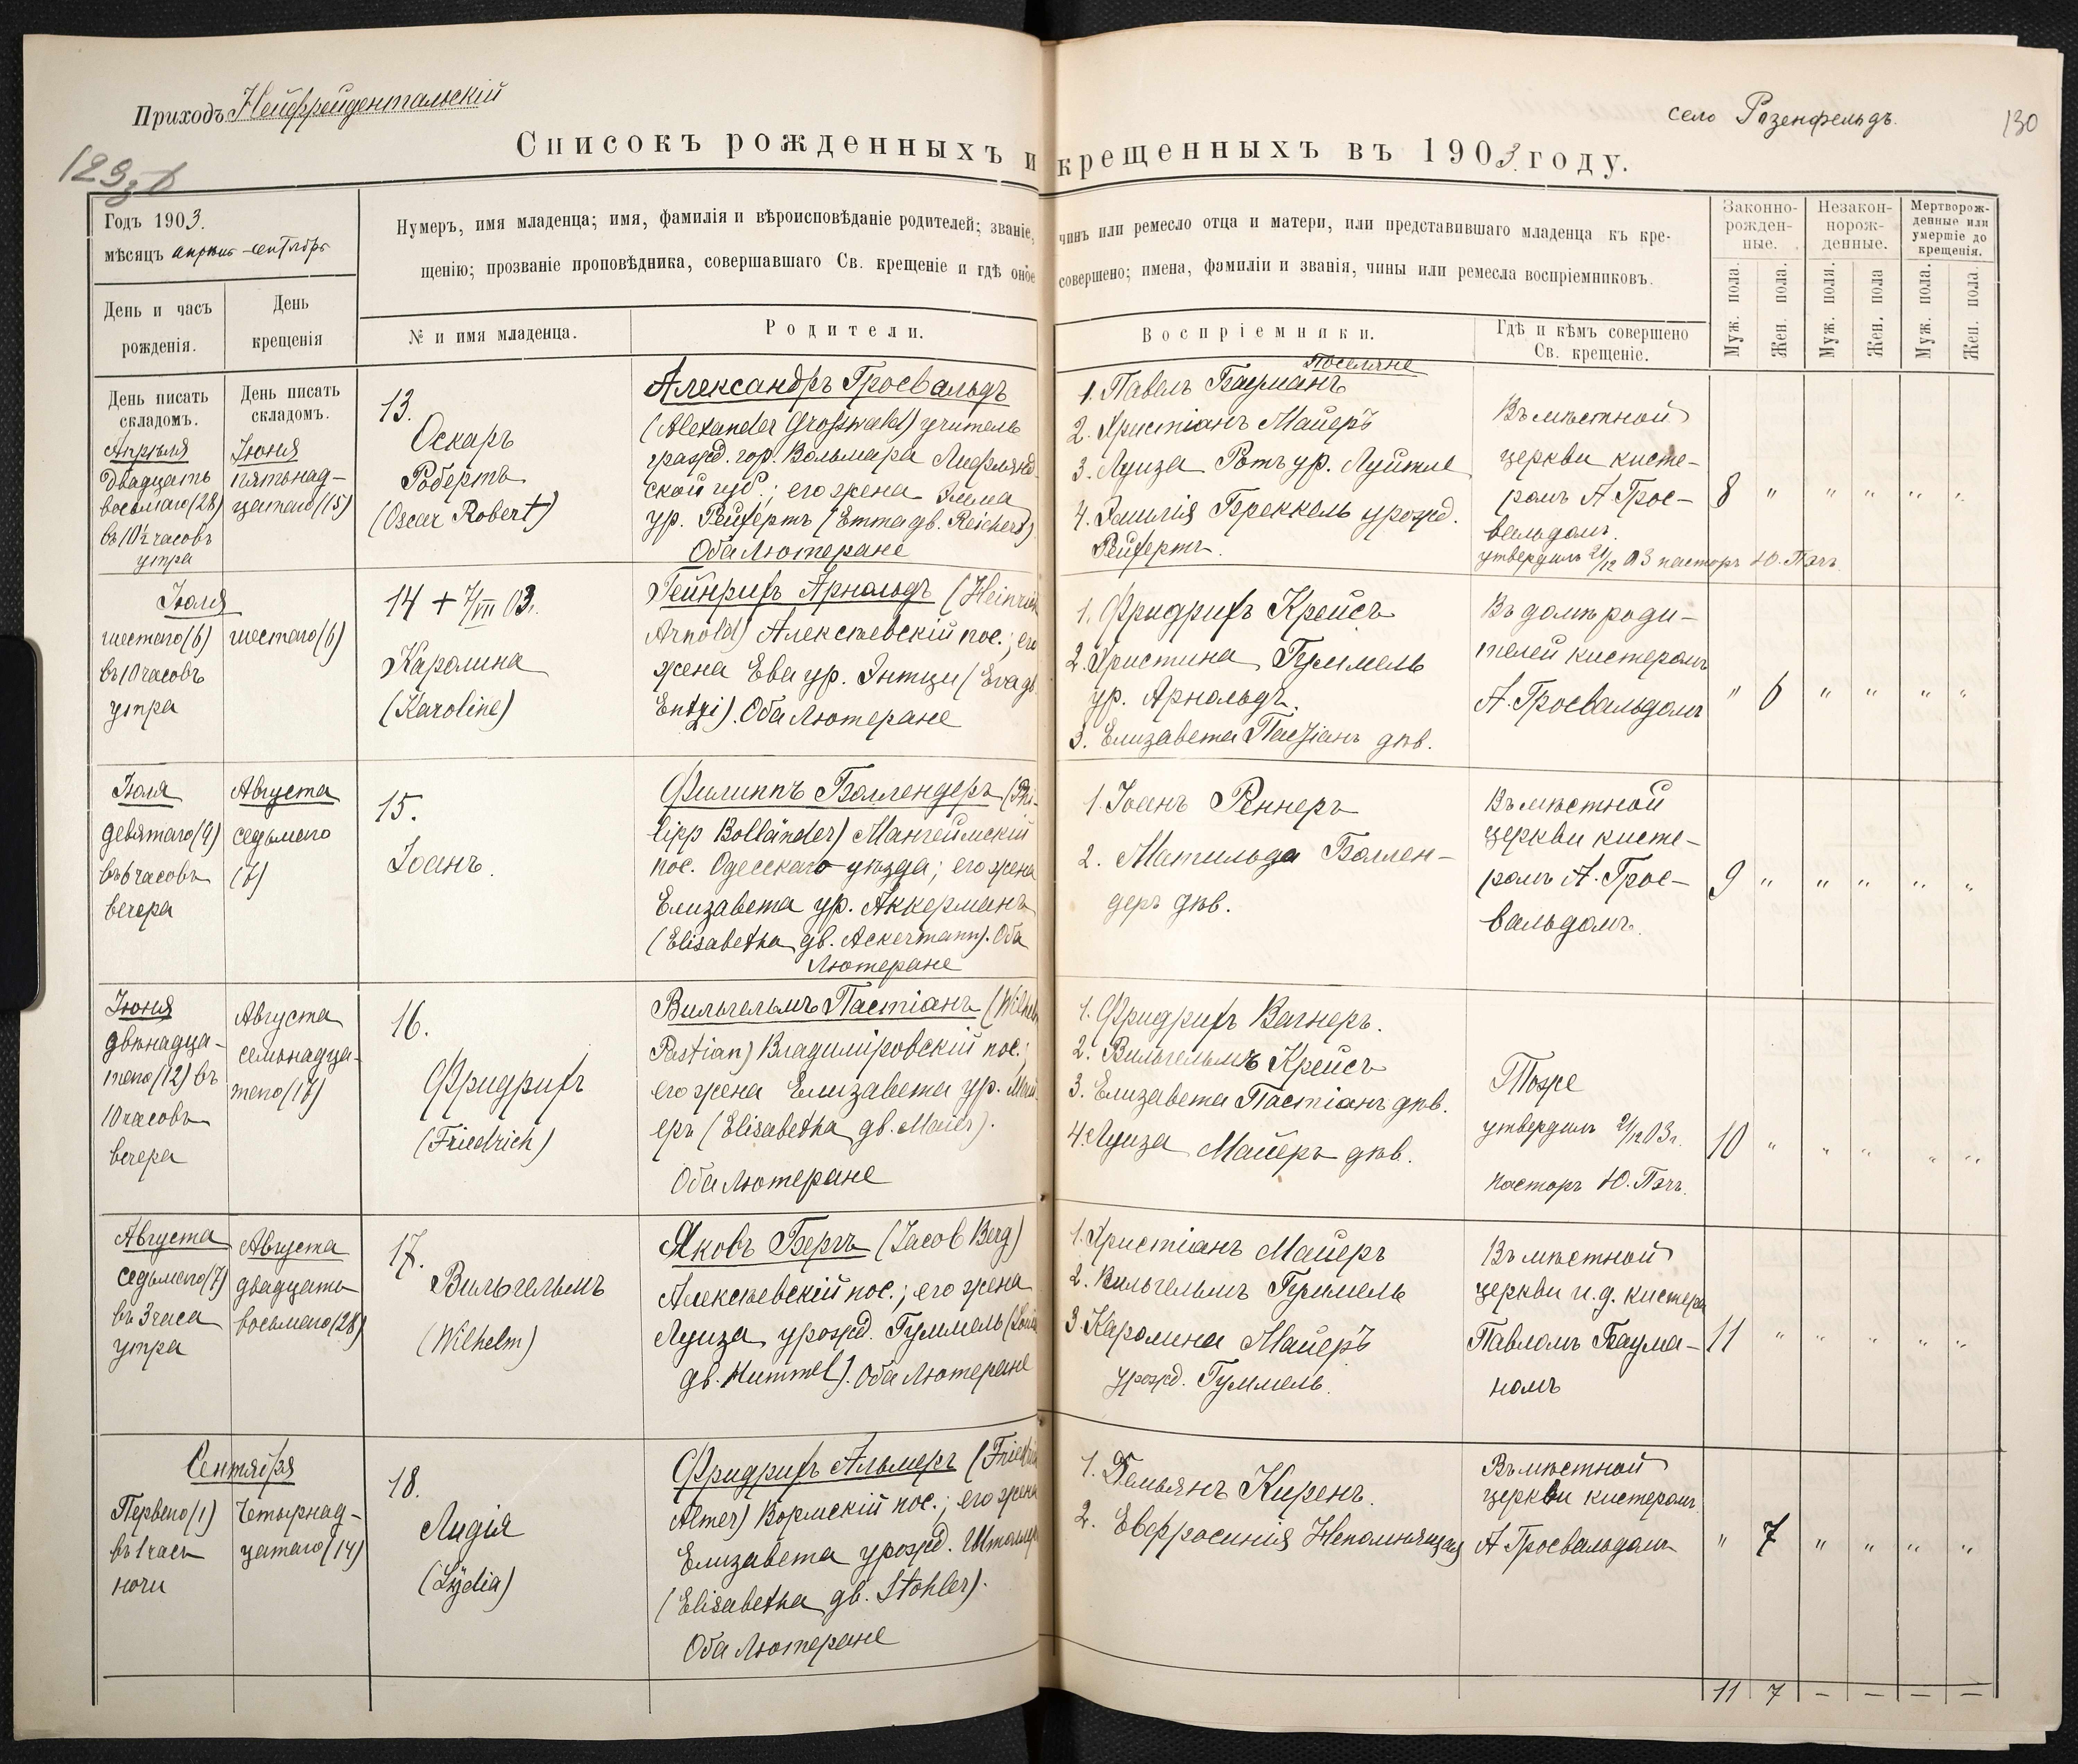 Приходъ Нейфрейдентальскій
село Розенфельдъ.
130
Списокъ рожденныхъ и крещенныхъ въ 1903 году.
Годъ 1903.
мѣсяцъ апрѣль-сентябрь
Нумеръ, имя младенца; имя, фамилія и вѣроисповѣданіе родителей; званіе, чинъ или ремесло отца и матери, или представившаго младенца къ кре-
щенію; прозваніе проповѣдника, совершавшаго Св. крещеніе и гдѣ оное совершено; имена, фамиліи и званія, чины или ремесла воспріемниковъ.
Законно-
рожден-
ные.
Незакон-
норож-
денные.
Мертворож-
денные или
умершіе до
крещенія.
День и часъ
рожденія.
День
крещенія
№ и имя младенца.
Родители.
Воспріемники.
Гдѣ и кѣмъ совершено
Св. крещеніе.
Муж. пола.
Жен. пола.
Муж. пола.
Жен. пола
Муж. пола.
Жен. пола.
День писать
складомъ.
Апрѣля
двадцать
восьмаго (28)
въ 10½ часовъ
утра
День писать
складомъ.
Іюня
пятьнад-
цатаго (15)
13.
Оскаръ
Робертъ
(Oscar Robert)
Александръ Гросвальдъ
(Alexander Großwald) учитель
гражд. гор. Вольмара Лифлянд-
ской губ.; его жена Эмма
ур. Рейхертъ (Emma gb. Reichert)
Оба Лютеране
Поселяне
1. Павелъ Бауманъ
2. Христіанъ Майеръ
3. Луиза Ротъ ур.
4. Эмилія Бреккель урожд.
Рейхертъ.
Въ мѣстной
церкви кисте-
ромъ А Грос-
вальдомъ.
утвердилъ 21/12 03 пасторъ Ю. Пэчъ
8 " " " " "
Іюля
шестаго (6)
въ 10 часовъ
утра
шестаго (6)
14 + 7/VII 03.
Каролина
(Karoline)
Гейнрихъ Арнольдъ (Heinrich
Arnold) Алексѣевскій пос.; его
жена Ева ур. Энтци (Eva gb.
Entzi). Оба Лютеране
1. Фридрихъ Крейсъ
2. Христина Гуммель
ур. Арнольдъ.
3. Елизавета Пастіанъ дѣв.
Въ домѣ роди-
телей кистеромъ
А. Гросвальдомъ
" 6 " " " "
Іюля
девятаго (9)
въ 6 часовъ
вечера
Августа
седьмаго
(7)
15.
Іоанъ.
Филиппъ Боллендеръ (Phi-
lipp Bolländer) Мангеймскій
пос. Одесскаго уѣзда; его жена
Елизавета ур. Аккерманъ
(Elisabetha gb. Ackermann). Оба
Лютеране
1. Іоанъ Реннеръ
2. Матильда Боллен-
деръ дѣв.
Въ мѣстной
церкви кисте-
ромъ А. Грос-
вальдомъ.
9 " " " " "
Іюня
двѣнадца-
таго (12) въ
10 часовъ
вечера
Августа
семьнадца-
таго (17)
16.
Фридрихъ
(Friedrich)
Вильгельмъ Пастіанъ (Wilhelm
Pastian) Владиміровскій пос.;
его жена Елизавета ур. Май-
еръ (Elisabetha gb. Maier).
Оба Лютеране
1. Фридрихъ Вагнеръ.
2. Вильгельмъ Крейсъ
3. Елизавета Пастіанъ дѣв.
4. Луиза Майеръ дѣв.
Тоже
утвердилъ 21/12 03 г.
пасторъ Ю. Пэчъ.
10 " " " " "
Августа
седьмаго (7)
въ 3 часа
утра
Августа
двадцать
восьмаго (28)
17.
Вильгельмъ
(Wilhelm)
Яковъ Бергъ (Jacob Berg)
Алексѣевскій пос.; его жена
Луиза урожд. Гуммель (Louisa
gb. Hummel). Оба Лютеране
1. Христіанъ Майеръ
2. Вильгельмъ Гуммель
3. Каролина Майеръ
урожд. Гуммель.
Въ мѣстной
церкви и.д. кистера
Павломъ Баума-
номъ
11 " " " " "
Сентября
Перваго (1)
въ 1 часъ
ночи
Четырнад-
цатаго (14)
18.
Лидія
(Lydia)
Фридрихъ Альмеръ (Friedrich
Almer) Вормскій пос.; его жена
Елизавета урожд. Штолеръ
(Elisabetha gb. Stohler).
Оба Лютеране
1. Демьянъ Киренъ.
2. Евфросинія Непомнящая
Въ мѣстной
церкви кистеромъ
А Гросвальдомъ
" 7 " " " "
11 7 – – – –